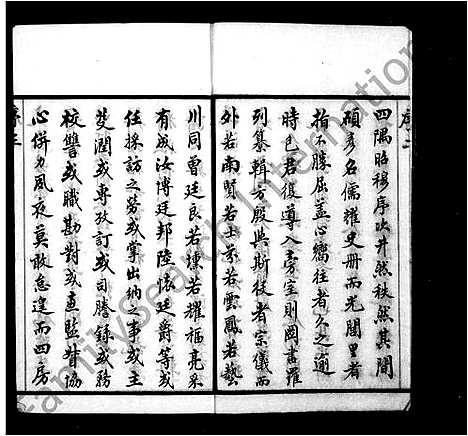 四隅昭穆序次井然秩然其間
碩彥名儒耀史冊而光閭里者
指不勝屈益心嚮往者久之適
時邑君復導入旁室則圖書羅
列纂輯方殷與斯役者宗儀而
外若南賢若士芬若雲鳳若藝
川同曾廷良若懷若耀福亮采
有成汝博廷邦陸懷廷爵等或
任採訪之勞或掌出納之事或主
芟潤或專攷訂或司謄錄或務
校讐或職勘對或直監督協
心併力夙夜莫敢怠遑而四房